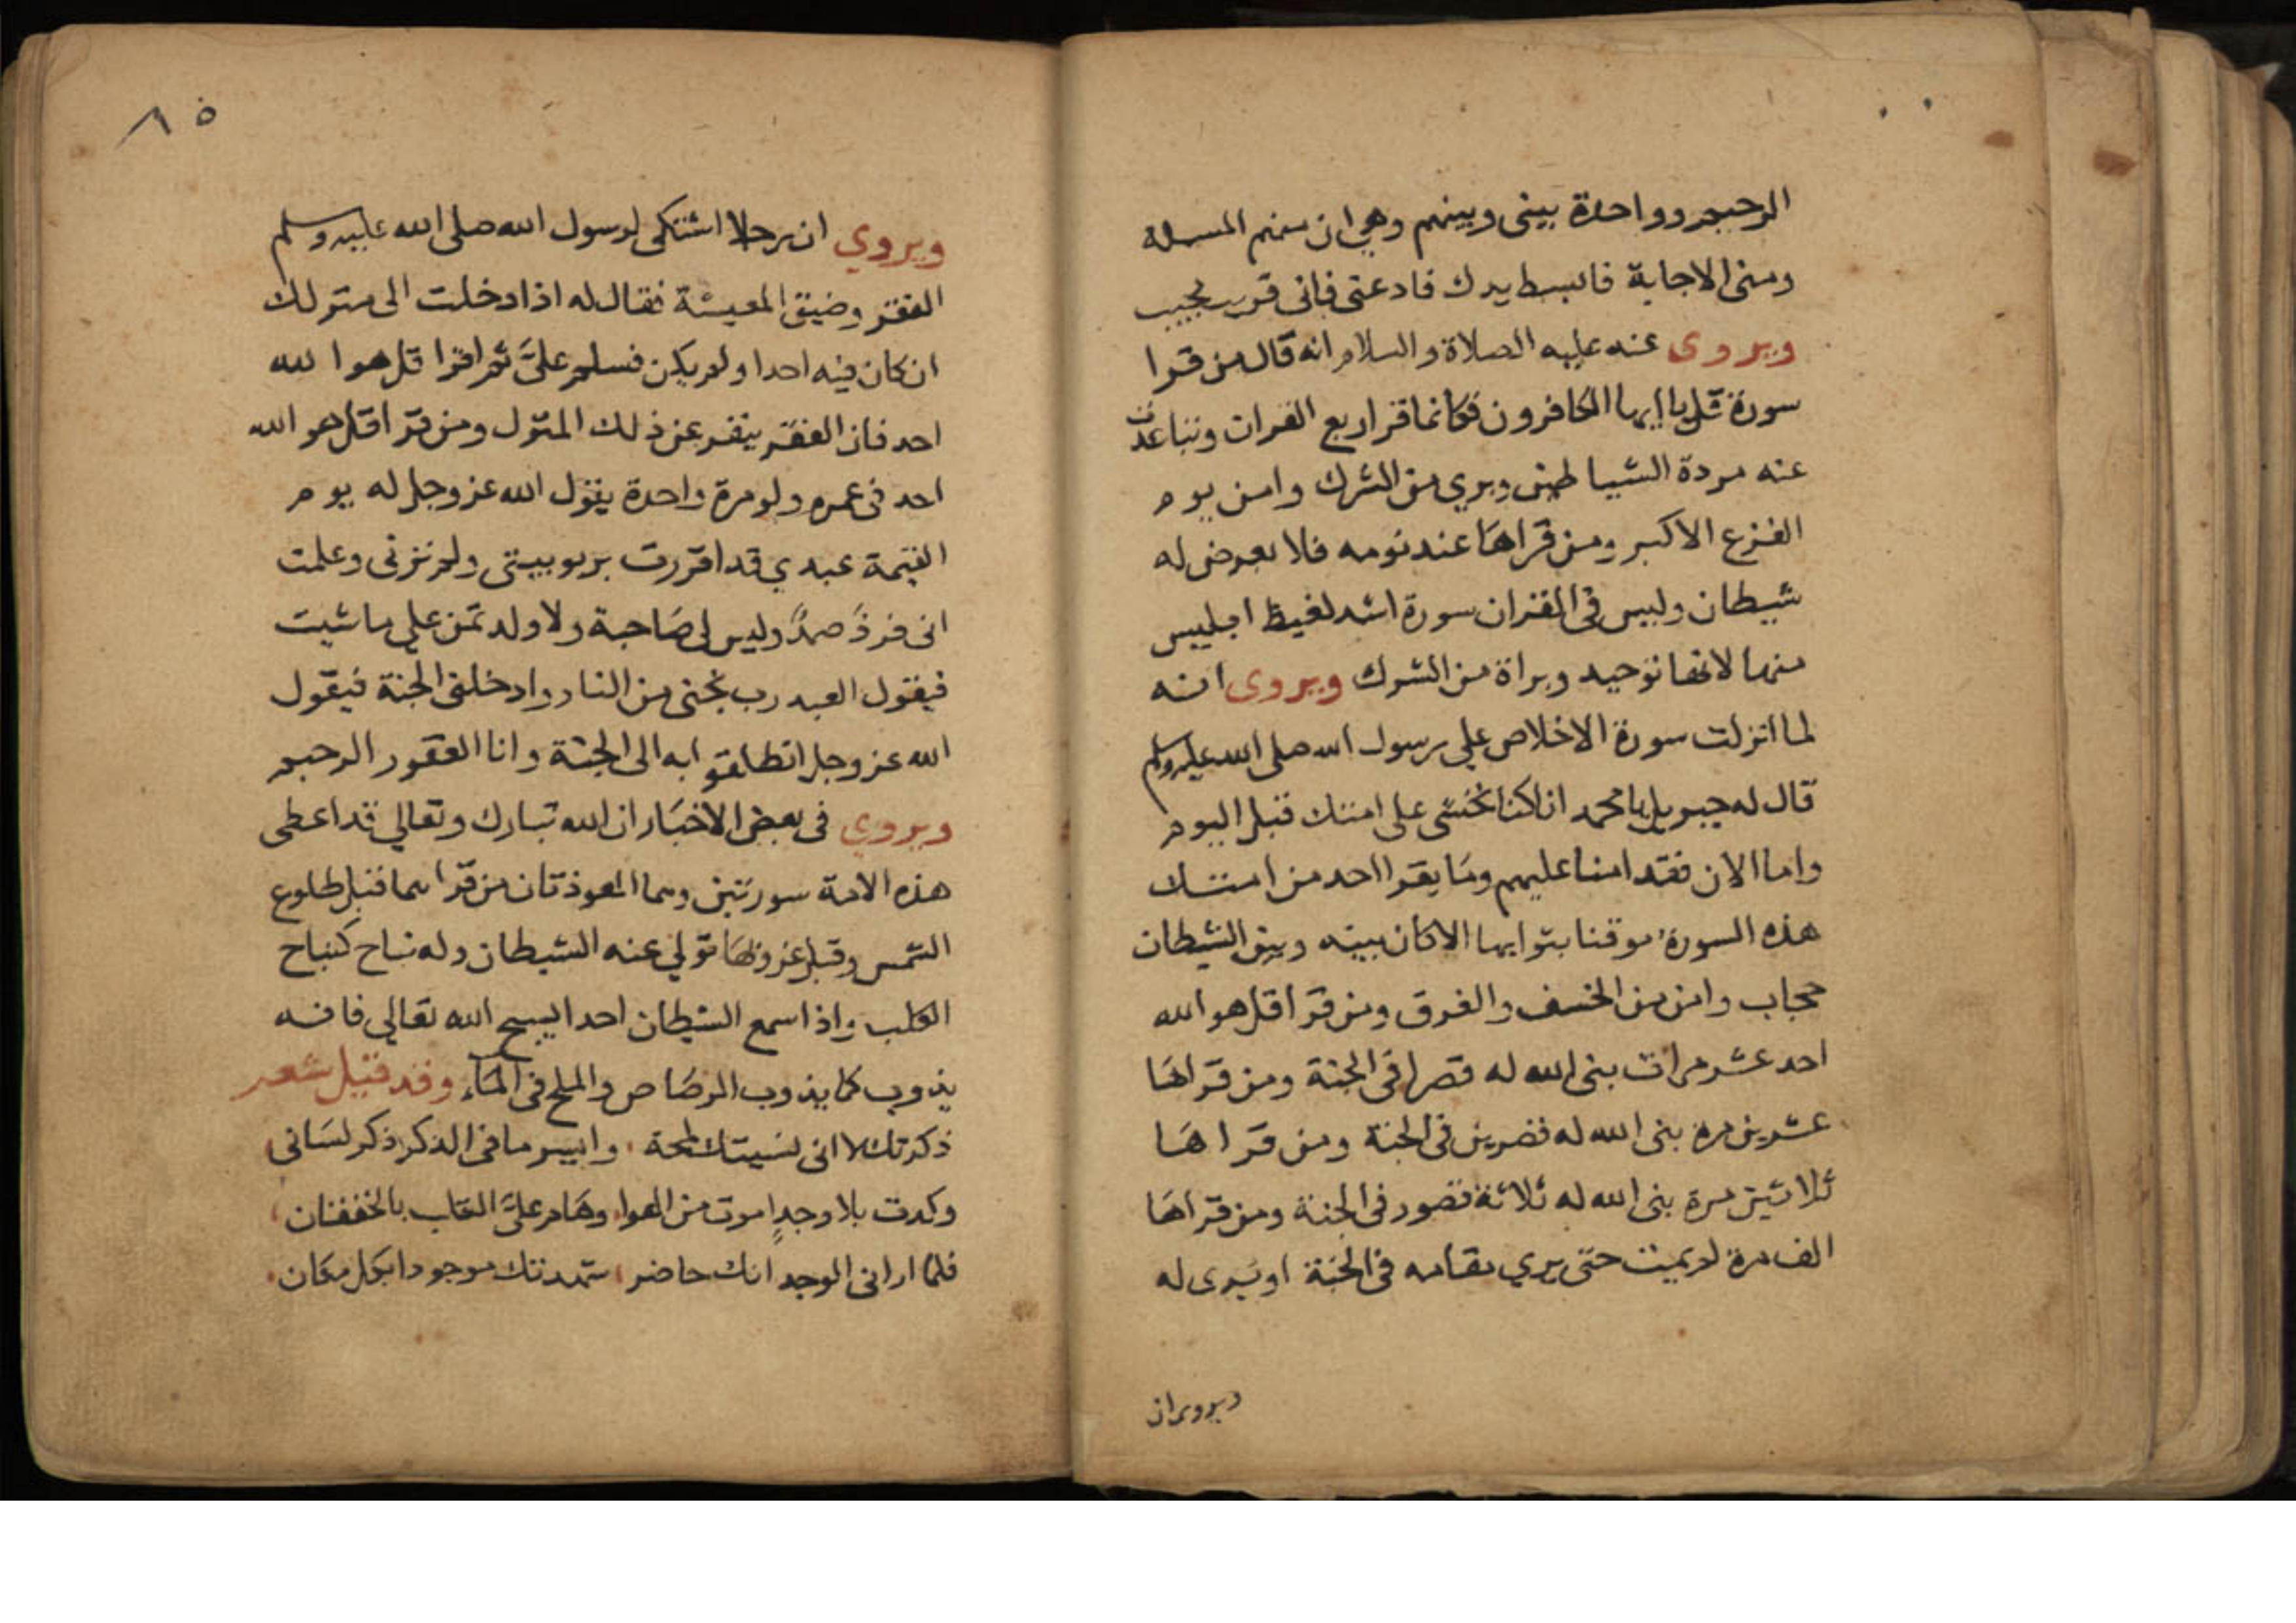 الرحيم وواحدة بيني وبينهم وهي ان منهم المسله
ومني الاجابة فابسط يدك فادعني فاني قريب مجيب
ويروى عنه عليه الصلاة والسلام انه قال من قرا
سورة قل يا ايها الكافرون فكانما قرا ربع القران وتباعدت
عنه مردة الشياطين وبري من الشرك وامن يوم
الفزع الاكبر ومن قراها عند نومه فلا يعرض له
شيطان وليس في القران سورة اشد لغيظ ابليس
منها لانها توحيد وبراة من الشرك ويروى انه
لما انزلت سورة الاخلاص علي رسول الله صلى الله عليه وسلم
قال له جبريل يا محمد انا كنا نخشى على امتك قبل اليوم
واما الان فقد امنا عليهم وما يقرا احد من امتك
هذه السورة موقنا بثوابها الا كان بينه وبين الشيطان
حجاب وامن من الخسف والغرق ومن قرا قل هو الله
احد عشر مرات بنى الله له قصرا في الجنة ومن قراها
عشرين مره بنى الله له قصرين في الجنة ومن قراها
ثلاثين مرة بنى الله له ثلاثة قصور في الجنة ومن قراها
الف مرة لم يمت حتى يري مقامه في الجنة او يرى له
ويروى ان
٨٥
ويروي ان رجلا اشتكى لرسول الله صلى الله عليه وسلم
الفقر وضيق المعيشة فقال له اذا دخلت الى منزلك
ان كان فيه احدا ولم يكن فسلم علىّ ثم اقرا قل هو الله
احد فان الفقر ينفر عن ذلك المنزل ومن قرا قل هو الله
احد في عمره ولو مرة واحدة يقول الله عز وجل له يوم
القيمة عبدي قد اقررت بربوبيتي ولم ترني وعلمت
اني فردٌ صمدٌ وليس لي صاحبة ولا ولد تمن علي ما شيت
فيقول العبد رب نجني من النار وادخلني الجنة فيقول
الله عز وجل انطلقوا به الى الجنة وانا الغفور الرحيم
ويروي في بعض الاخبار ان الله تبارك وتعالي قد اعطى
هذه الامة سورتين وهما المعوذتان من قراهما قبل طلوع
الشمس وقبل غروبها تولي عنه الشيطان وله نباح كنباح
الكلب واذا سمع الشيطان احدا يسبح الله تعالي فانه
يذوب كما يذوب الرصاص والملح في الماء وقد قيل شعر
ذكرتك لا اني نسيتك لمحة وايسر ما في الذكر ذكر لساني
وكدت بلا وجدٍ اموت من الهوا وهام علىّ القلب بالخفقان
فلما اراني الوجد انك حاضر شهدتك موجودا بكل مكان